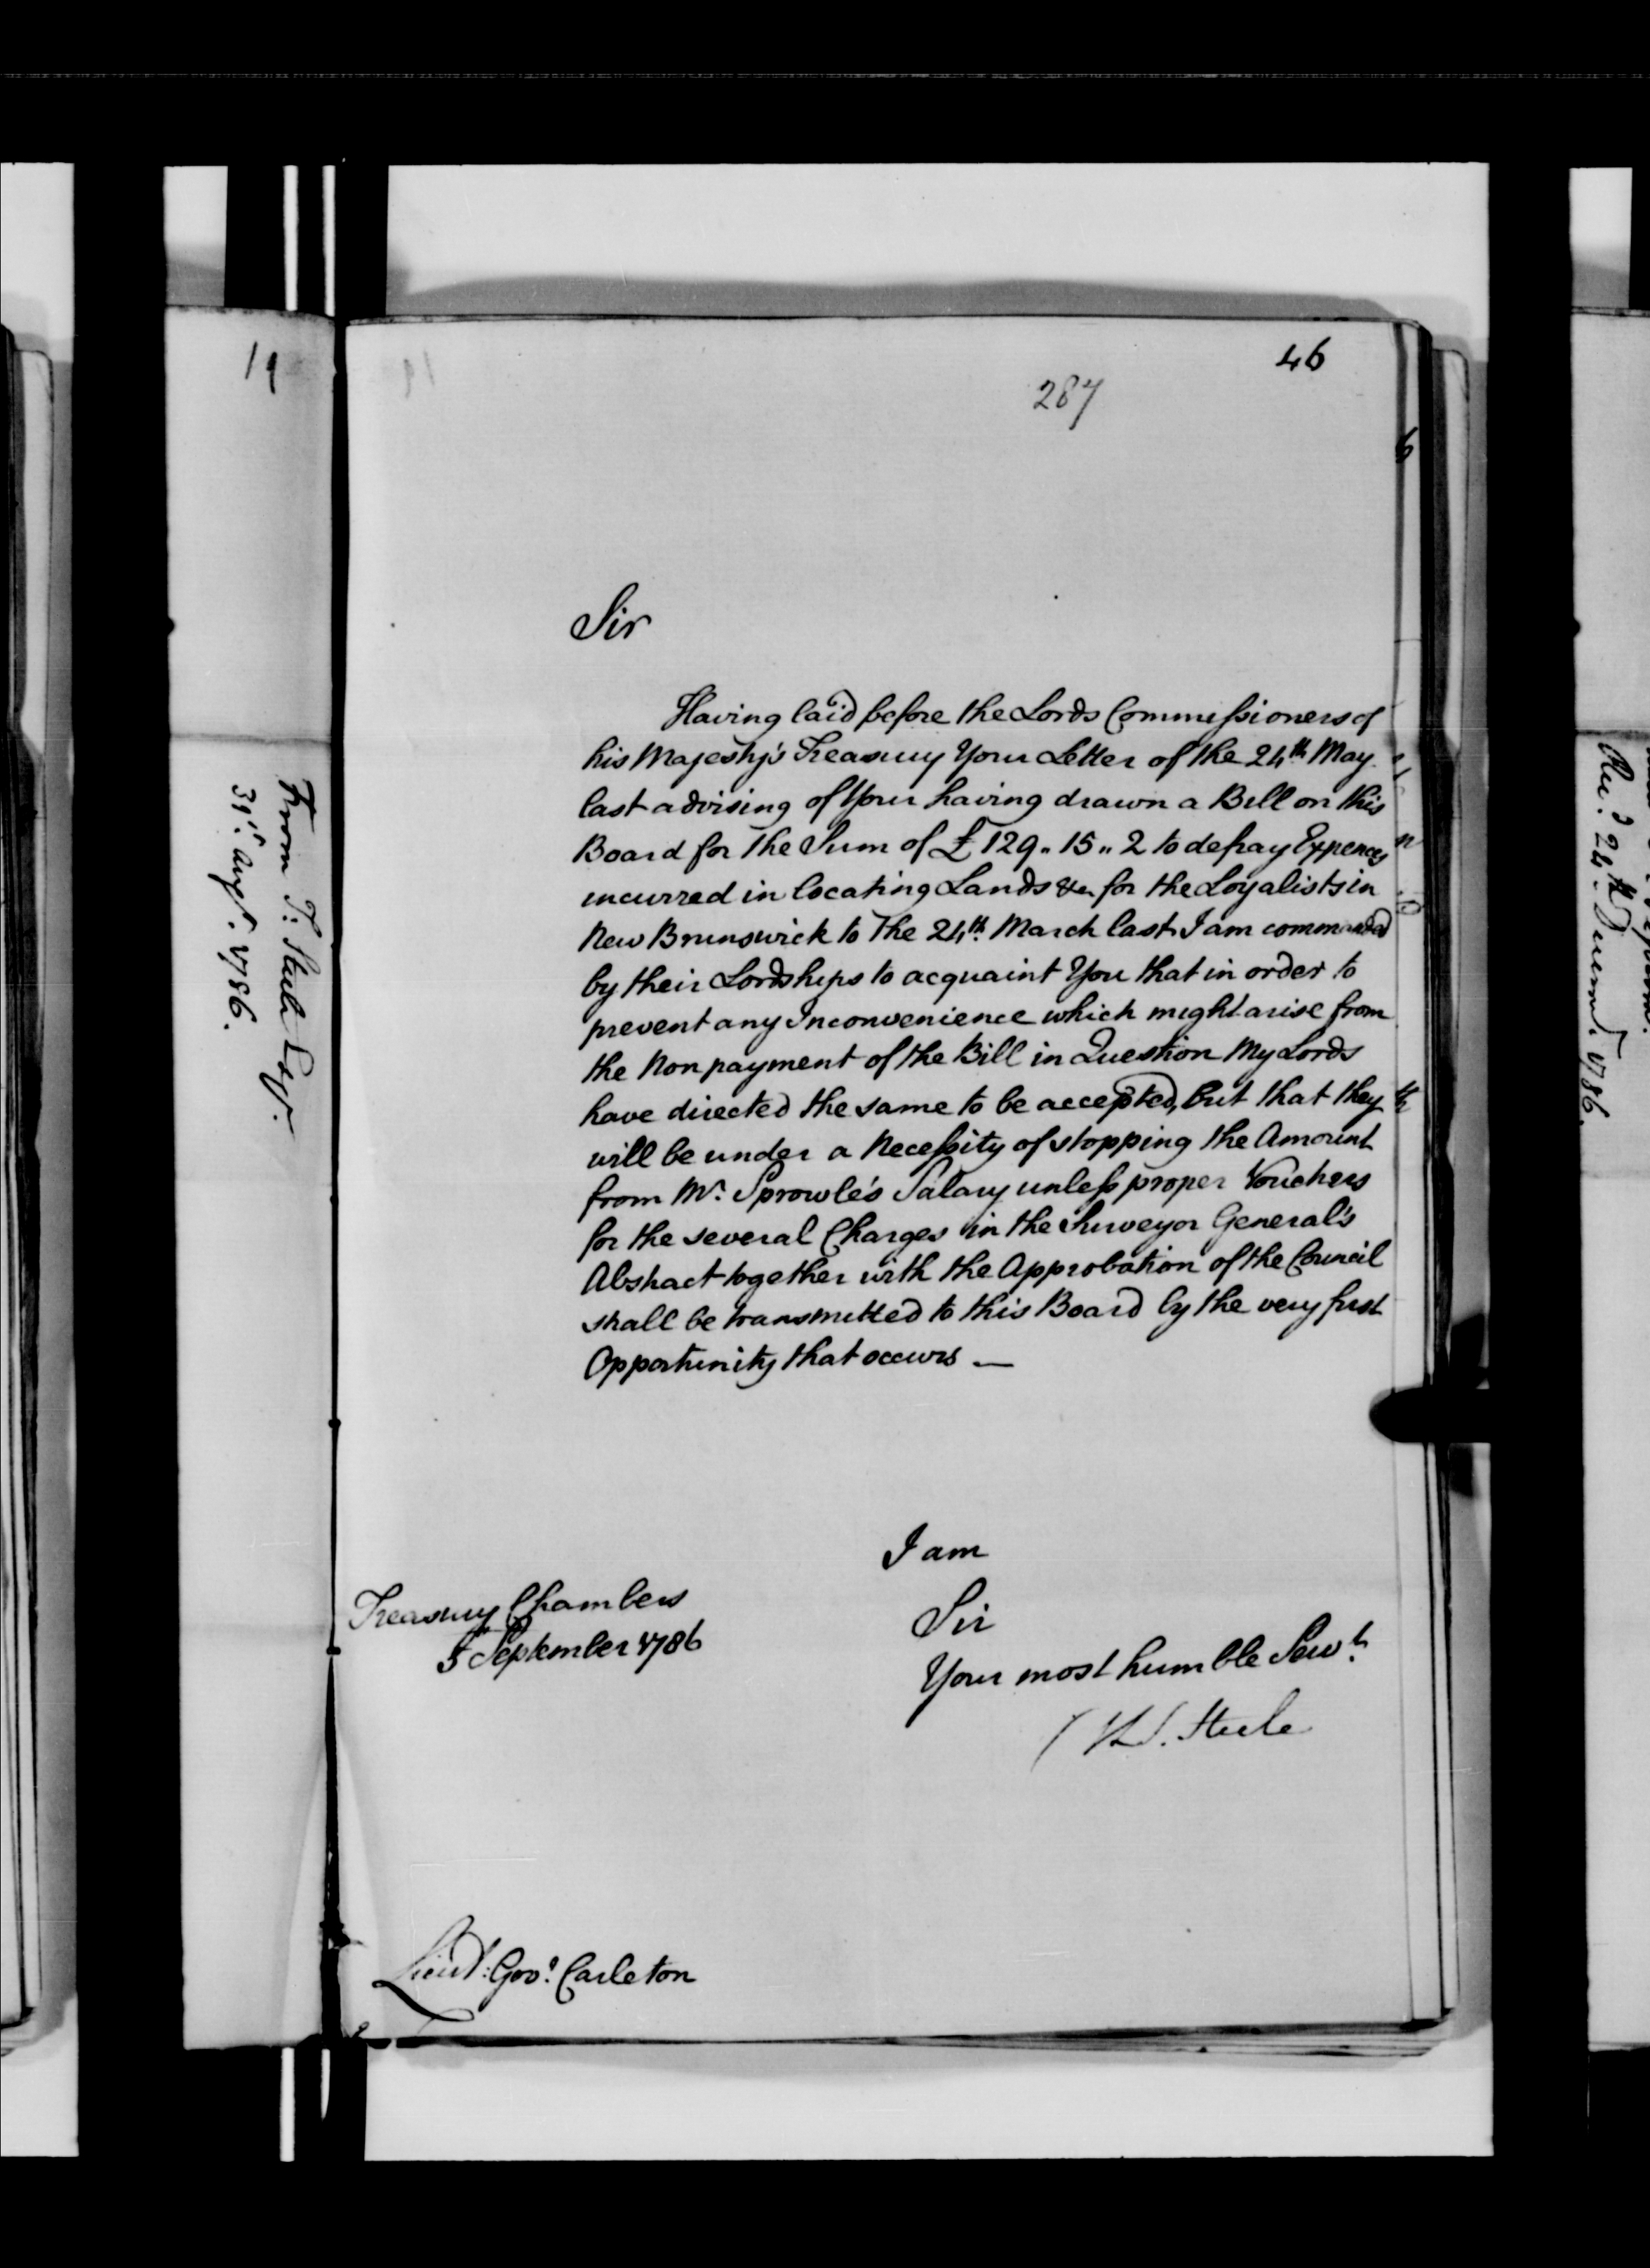 19
From T: Steele Esqr.
31st. Augt. 1786.
46
287
Sir
Having laid before the Lords Commissioners of
his Majesty's Treasury Your Letter of the 24th. May
last advising of Your having drawn a Bill on this
Board for the Sum of £129.. 15.. 2 to defray Expences
incurred in locating Lands &ca for the Loyalists in
New Brunswick to the 24th. March last I am commanded
by their Lordships to acquaint You that in order to
prevent any Inconvenience which might arise from
the Non payment of the Bill in Question My Lords
have directed the same to be accepted, but that they
will be under a Necessity of stopping the Amount
from Mr. Sprowle's Salary unless proper Vouchers
for the several Charges in the Surveyor General's
Abstract together with the Approbation of the Council
shall be transmitted to this Board by the very first
Opportunity that occurs —
I am
Sir
Your most humble Servt.
Steele
Treasury Chambers
5 September 1786
Lieut: Govr. Carleton
24th 1786.